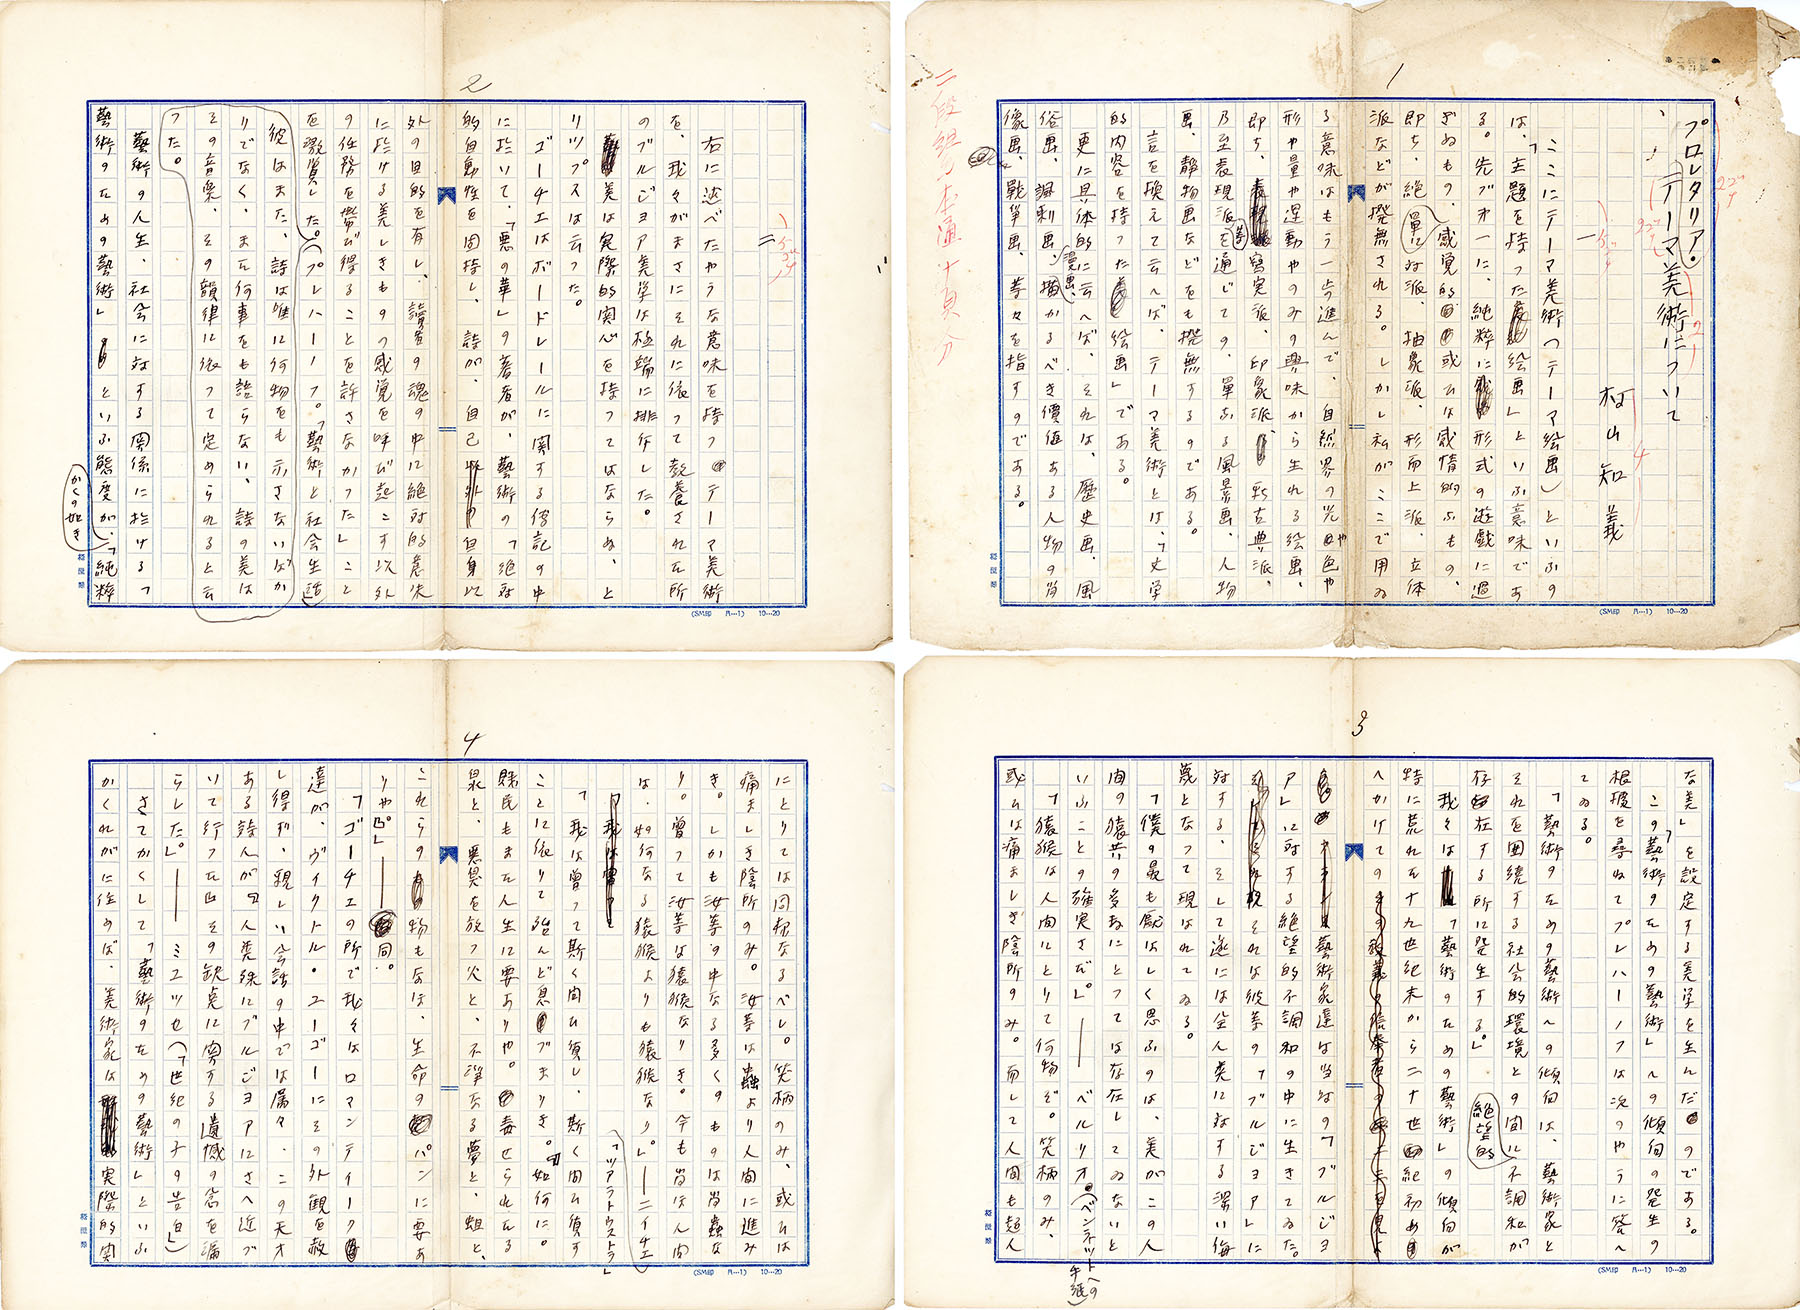 1
二段組み本通十頁分
プロレタリア・
テーマ美術について
村山知義
一
ここにテーマ美術(テーマ絵画)といふの
は、「主題を持った絵画」といふ意味であ
る。先づオ一に、純粋に形式の遊戯に過
ぎぬもの、感覚的或ひは感情的なもの、
即ち、絶対派、抽象派、形而上派、立体
派などが撥無される。しかし私がここで用ゐ
る意味はもう一歩進んで、自然界の光や色や
形や量や運動やのみの興味から生れる絵画、
即ち、写実派、印象派、新古典派、
乃至表現派等を通じての、単なる風景画、人物
画、静物画などをも撥無するのである。
言を換えて云へば、テーマ美術とは、「文学
的内容を持った絵画」である。
更に具体的に云へば、それは、歴史画、風
俗画、諷刺画、漫画、描かるべき価値ある人物の肖
像画、戦争画、等々を指すのである。
2
二
右に述べたやうな意味を持つテーマ美術
を、我々がまさにそれに依って教養された所
のブルジョア美学は極端に排斥した。
美は実際的関心を持ってはならぬ、と
リップスは云った。
ゴーチエはボードレールに関する傳記の中
に於いて、「悪の華」の著者が、藝術の「絶対
的自動性を固持し、詩が、自己自身以
外の目的を有し、讀者の魂の中に絶対的意味
に於ける美しきものの感覚を呼び起こす以外
の任務を帯び得ることを許さなかった」こと
を激賞した。(プレハーノフ。「藝術と社会生活」)
彼はまた、詩は唯に何物をも示さないばか
りでなく、また何事をも語らない、詩の美は
その音楽、その韻律に依って定められると云
った。
藝術の人生、社会に対する関係に於けるこ
かくの如き
藝術のための藝術」といふ態度が、「純粋
3
な美」を設定する美学を生んだのである。
この「藝術のための藝術」への傾向の発生の
根拠を尋ねてプレハーノフは次のやうに答へ
てゐる。
「藝術のための藝術への傾向は、藝術家と
それを囲繞する社会的環境との間に絶望的不調和が
存在する所に発生する。」
我々は「藝術のための藝術」の傾向が
特に荒れた十九世紀末から二十世紀初め
へかけての
藝術家達は当時の「ブルジョ
ア」に対する絶望的不調和の中に生きてゐた。
それは彼等の「ブルジョア」に
対する、そして遂には全人類に対する深い侮
蔑となって現はれてゐる。
「僕の最も厭はしく思ふのは、美がこの人
間の猿共の多数にとっては存在してゐないと
いふことの確実さだ」――ベルリオ(ベンネットへの手紙)
「猿猴は人間にとりて何物ぞ。笑柄のみ、
或ひは痛ましき陰所のみ。而して人間も超人
4
にとりては同様なるべし。笑柄のみ、或ひは
痛ましき陰所のみ。汝等は蟲より人間に進み
き。しかも汝等の中なる多くのものは尚蟲な
り。曾って汝等は猿猴なりき。今も尚ほ人間
は、如何なる猿猴よりも猿猴なり」――ニイチエ
「ツアラトウストラ」
「我は曾って斯く問ひ須し、斯く問ひ須す
ことに依りて殆んど息づまりき。『如何に。
賤民もまた人生に要ありや。毒せられたる
泉と、悪臭を放つ火と、不浄なる夢と、蛆と、
これらの物もなほ、生命のパンに要あ
りや』」――同。
「ゴーチエの所で我々はロマンティーク
達が、ヴィクトル・ユーゴーにその外観を赦
し得ず、親しい会話の中では屡々、この天才
ある詩人が『人類殊にブルジョアにさへ近づ
いて行った』その欠点に関する遺憾の念を漏
らした」――ミュッセ(「世紀の子の告白」)
さてかくして「藝術のための藝術」といふ
かくれがに住めば、美術家は実際的関
(SM印 A…1) 10…20
(SM印 A…1) 10…20
(SM印 A…1) 10…20
(SM印 A…1) 10…20